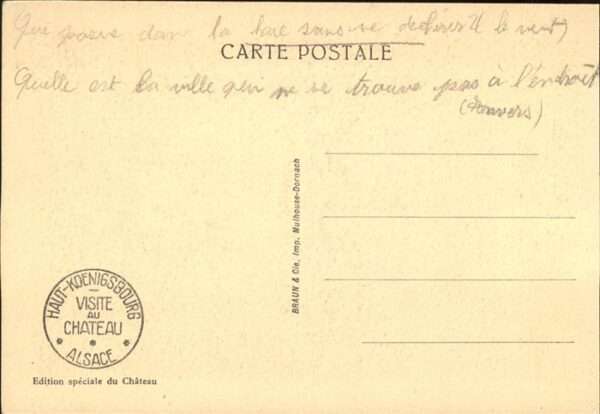 Que passe dan la haie sans se déchirer ? le vent)
CARTE POSTALE
Quelle est la ville qui ne se trouve pas à l'endroit
(Anvers)
BRAUN & Cie, Imp. Mulhouse-Dornach
HAUT-KOENIGSBOURG
VISITE
AU
CHATEAU
ALSACE
Edition spéciale du Château